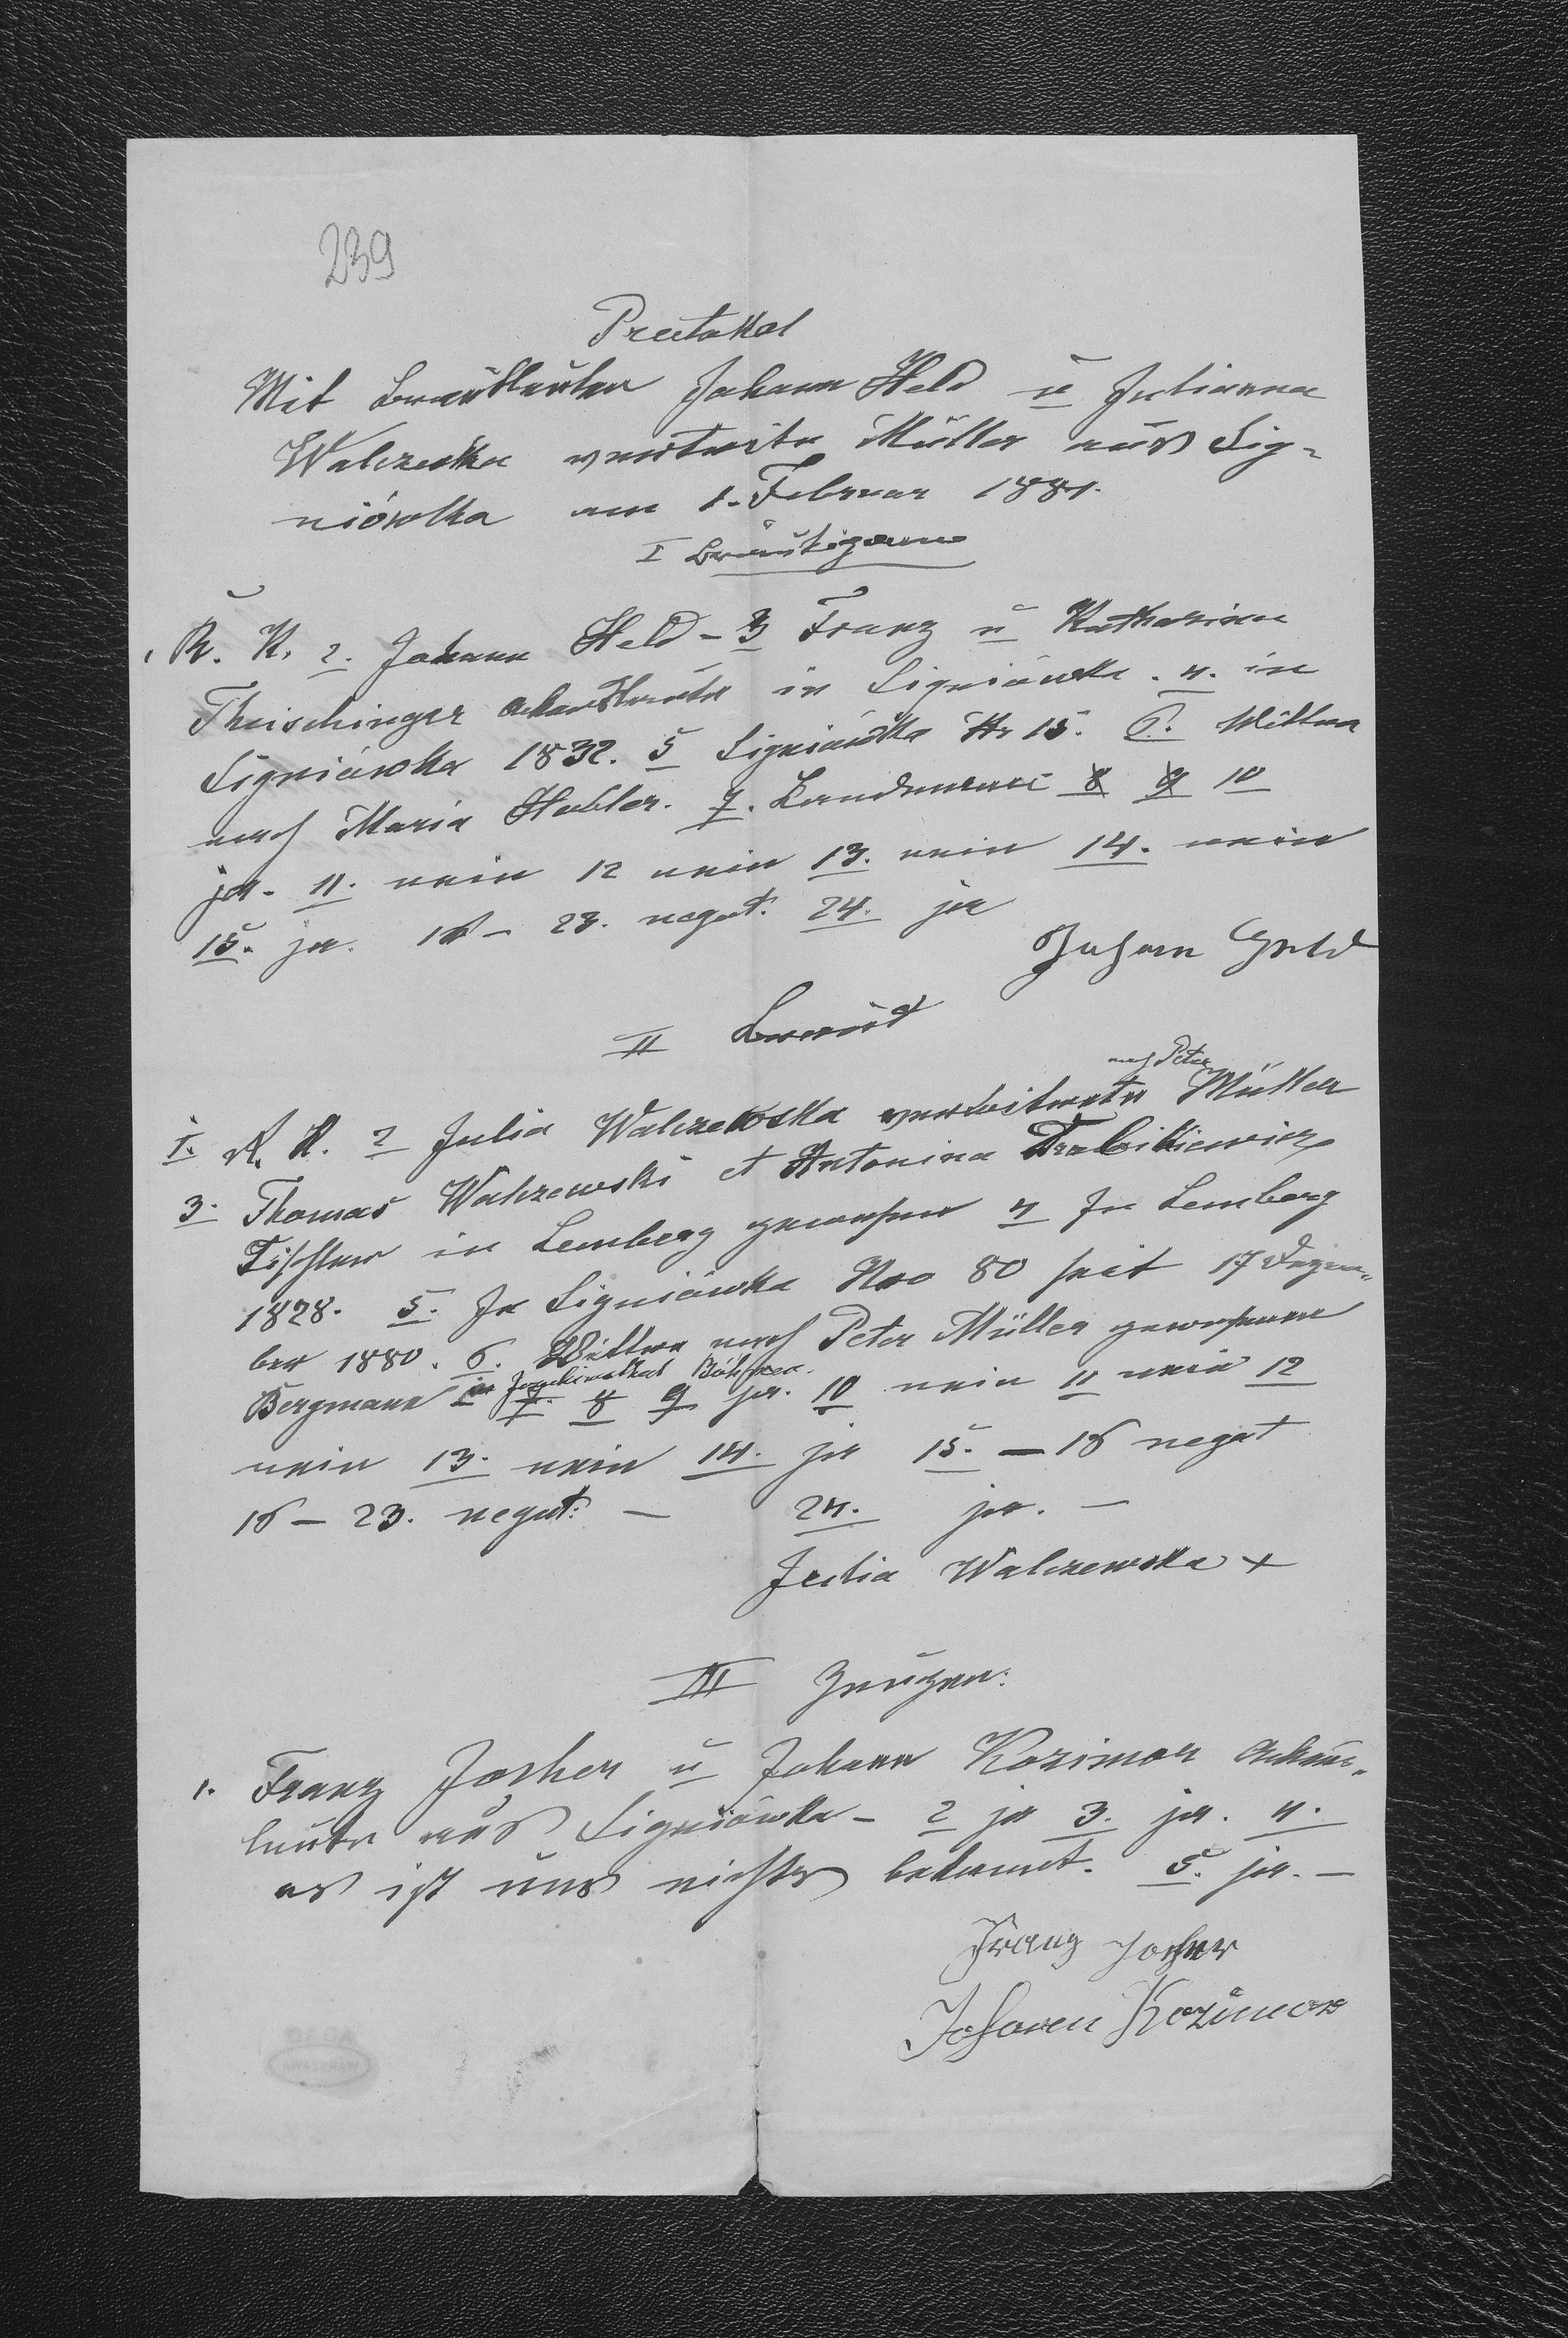 239
Protokol
Mit Brautleuten Johann Held u Julianna
Walczeska verwitwete Müller aus Sig-
niówka am 1. Februar 1881.
I Bräutigam
1 R. K. 2. Johann Held - 3 Franz u Katharina
Theischinger Ackersleute in Signiówka. 4. in
Signiówka 1832. 5 Signiówka Nr 15. 6. Wittwer
nach Maria Habler. 7. 8 9 10
ja. 11. nein 12 nein 13. nein 14. nein
15. ja. 16 - 23. negat. 24. ja
Johann Held
II Braut
nach Peter
1. R. K. 2 Julia Walczewska verwitwete Müller
3. Thomas Walczewski et Antonina Drabikiewicz
Tischler in Lemberg gewesener 4 In Lemberg
1828. 5. In Signiówka Nro 80 seit 17 Dezem-
ber 1880. 6. Wittwe nach Peter Müller gewesenen
in Joachimsthal Böhmen.
Bergmann 7. 8 9 ja. 10 nein 11 nein 12
nein 13. nein 14. ja 15. - 16 negat
16 - 23. negat: - 24. ja. -
Julia Walczewska +
III Zeugen:
1. Franz Jocher u Johann Kozimor Ackers-
leute aus Signiówka - 2 ja 3. ja. 4.
es ist uns nichts bekannt. 5. ja. -
Franz Jocher
Johann Kozimor